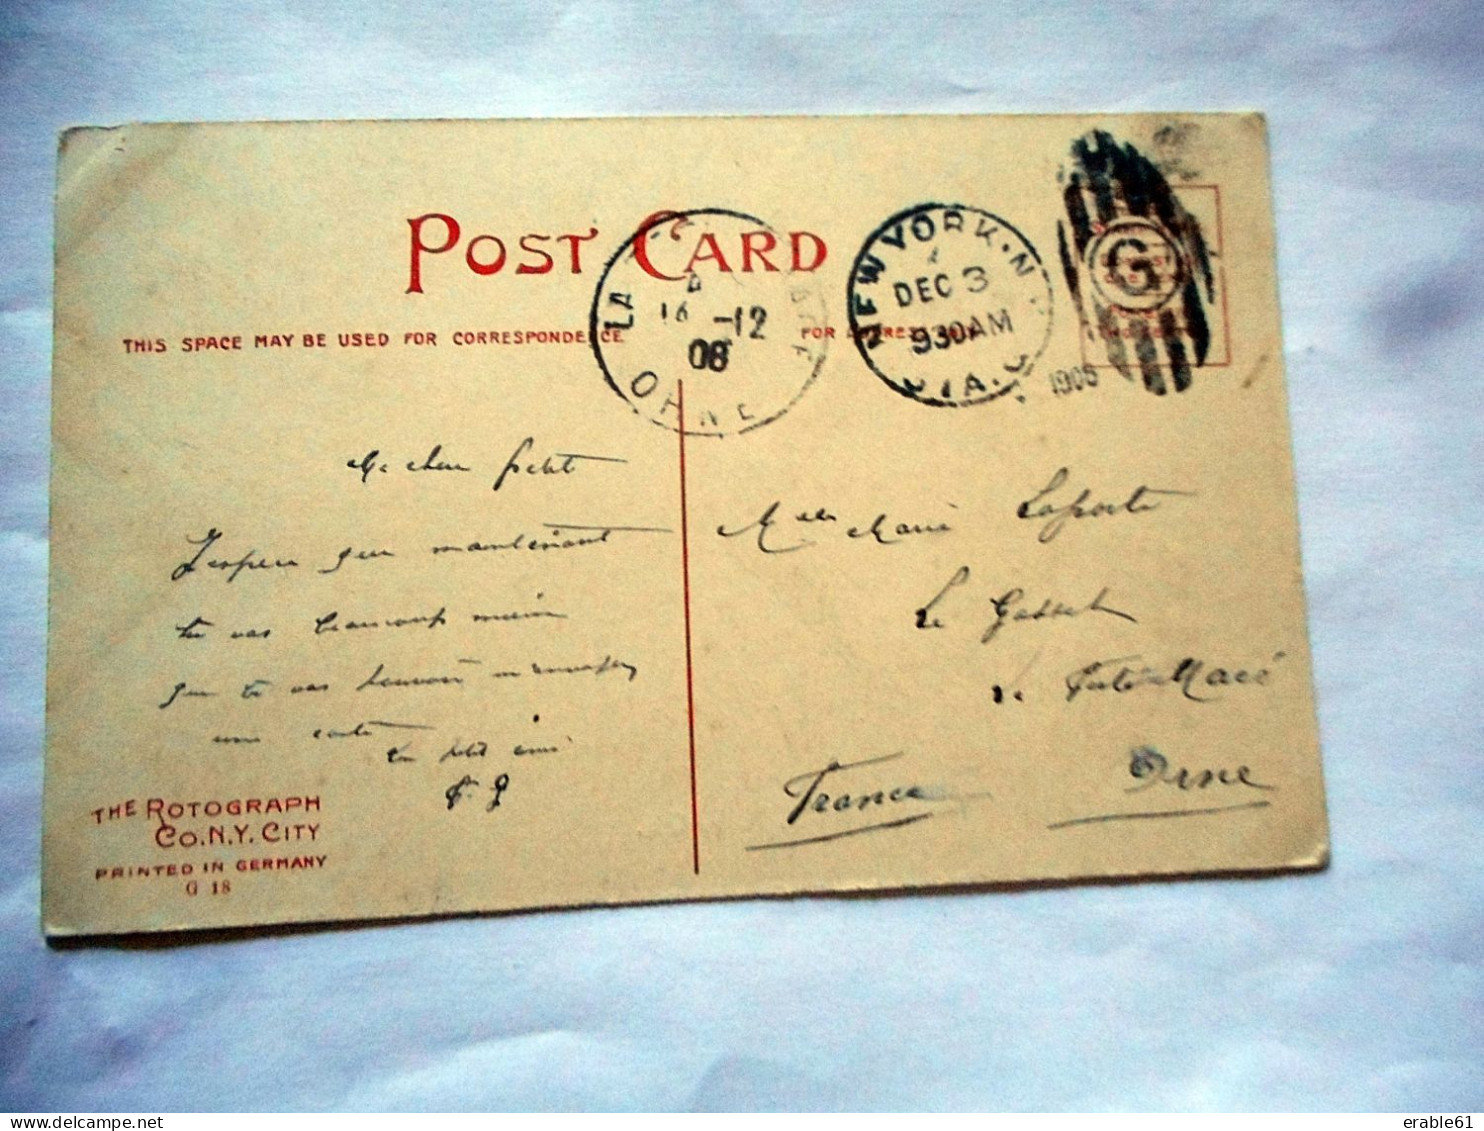 POST CARD
THIS SPACE MAY BE USED FOR CORRESPONDENCE
FOR
LA
16 -12
08
ORNE
NEW YORK. N.
DEC 3
930AM
STA.
G
Ma cher petit
J'espère que maintenant
tu vas beaucoup mieux
que tu vas pouvoir m'envoyer
une carte
Ton petit ami
Melle Marie Laporte
Le Gasset
La Ferté Macé
Orne
France
THE ROTOGRAPH
CO. N.Y. CITY
PRINTED IN GERMANY
G 18
erable61